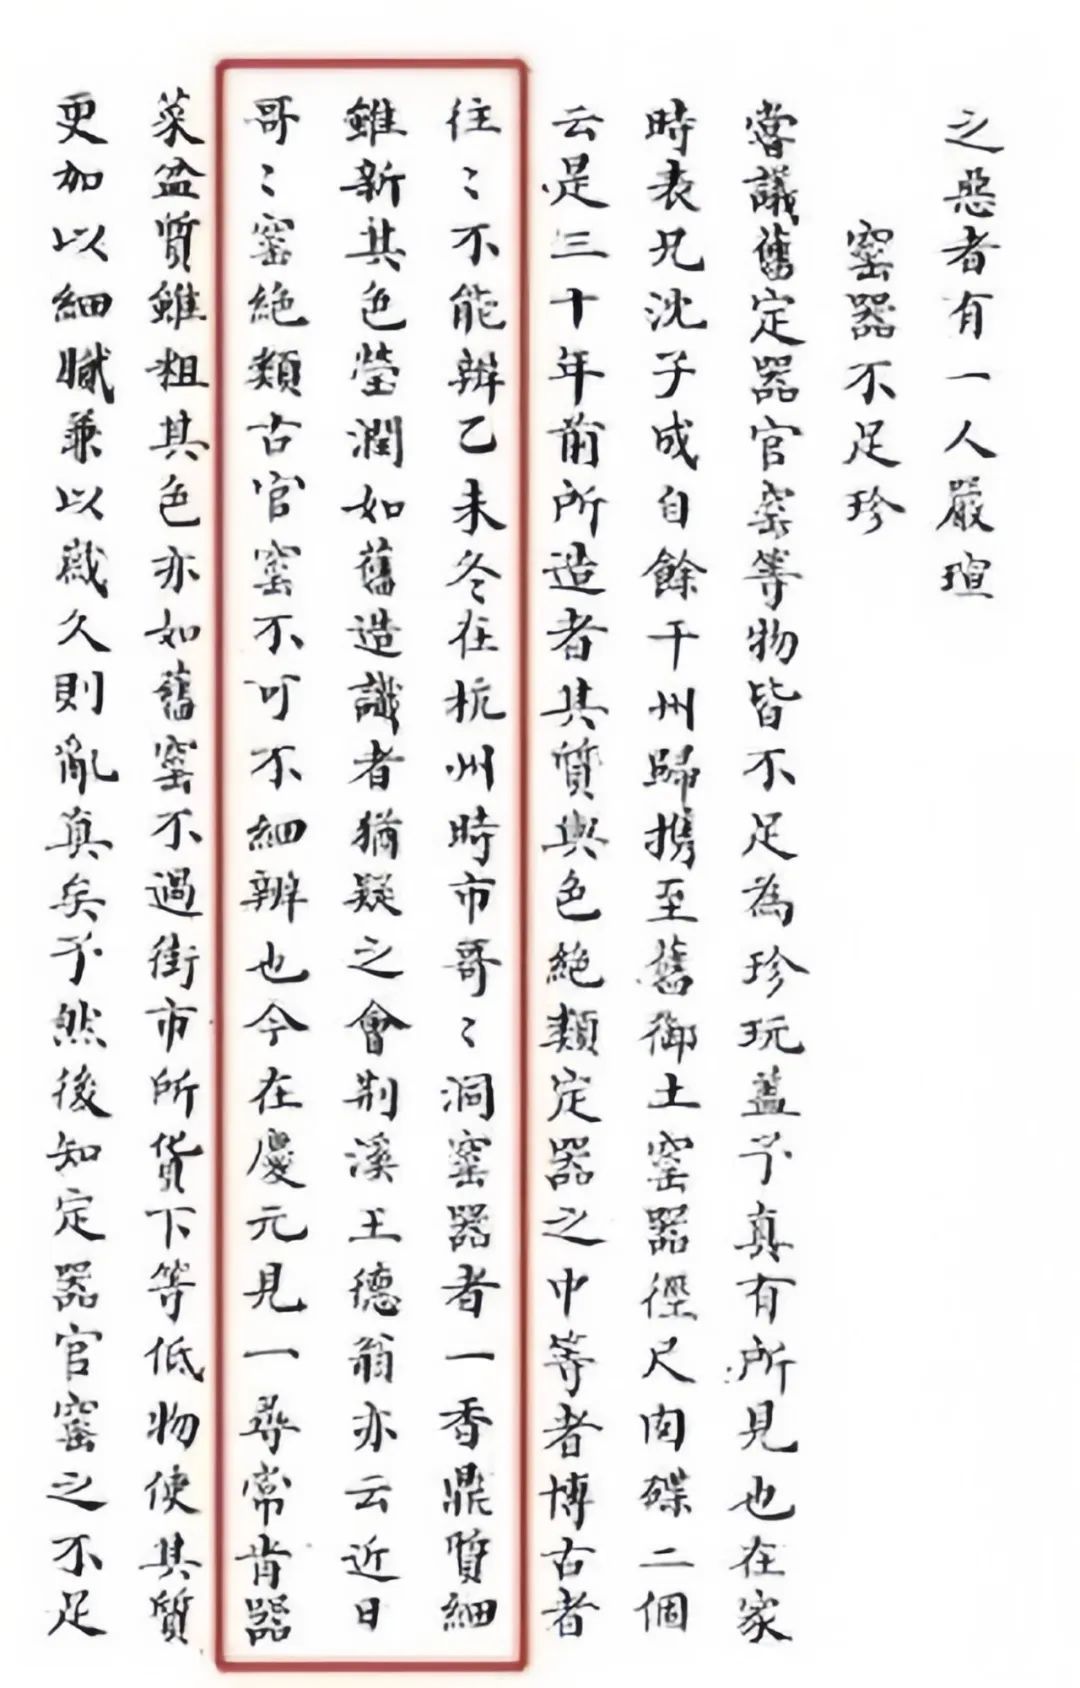 之惡者有一人嚴瑄
窑器不足珍
嘗議舊定器官窑等物皆不足為珍玩蓋予真有所見也在家
時表兄沈子成自餘干州歸携至舊御土窑器徑尺肉碟二個
云是三十年前所造者其質與色絶類定器之中等者博古者
往〻不能辨乙未冬在杭州時市哥〻洞窑器者一香鼎質細
雖新其色瑩潤如舊造識者猶疑之會荆溪王德翁亦云近日
哥〻窑絶類古官窑不可不細辨也今在慶元見一尋常青器
菜盆質雖粗其色亦如舊窑不過街市所貨下等低物使其質
更加以細膩兼以歲久則亂真矣予然後知定器官窑之不足